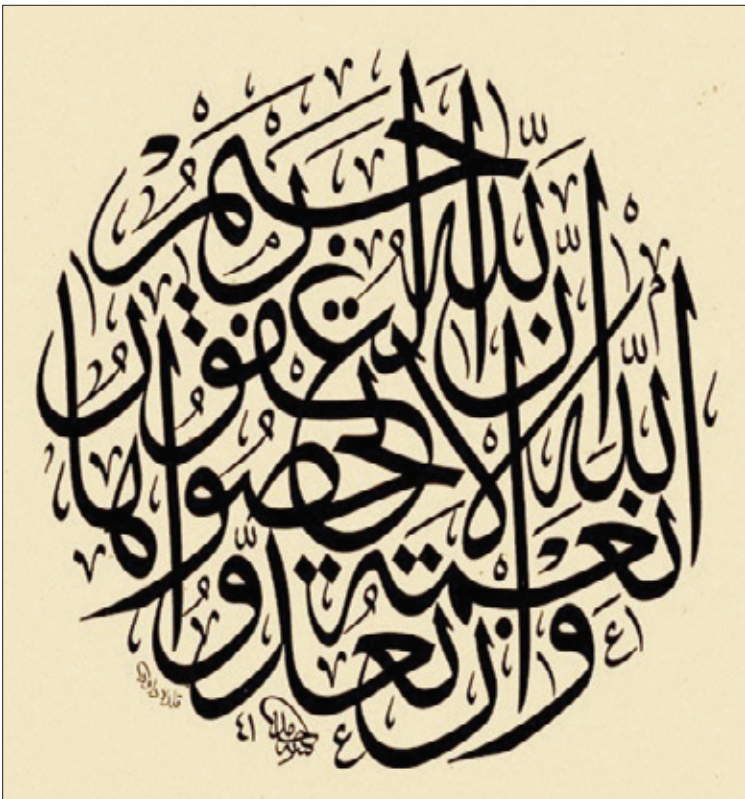 وَإِنْ تَعُدُّوا نِعْمَةَ اللَّهِ لَا تُحْصُوهَا إِنَّ اللَّهَ لَغَفُورٌ رَحِيمٌ
٤١